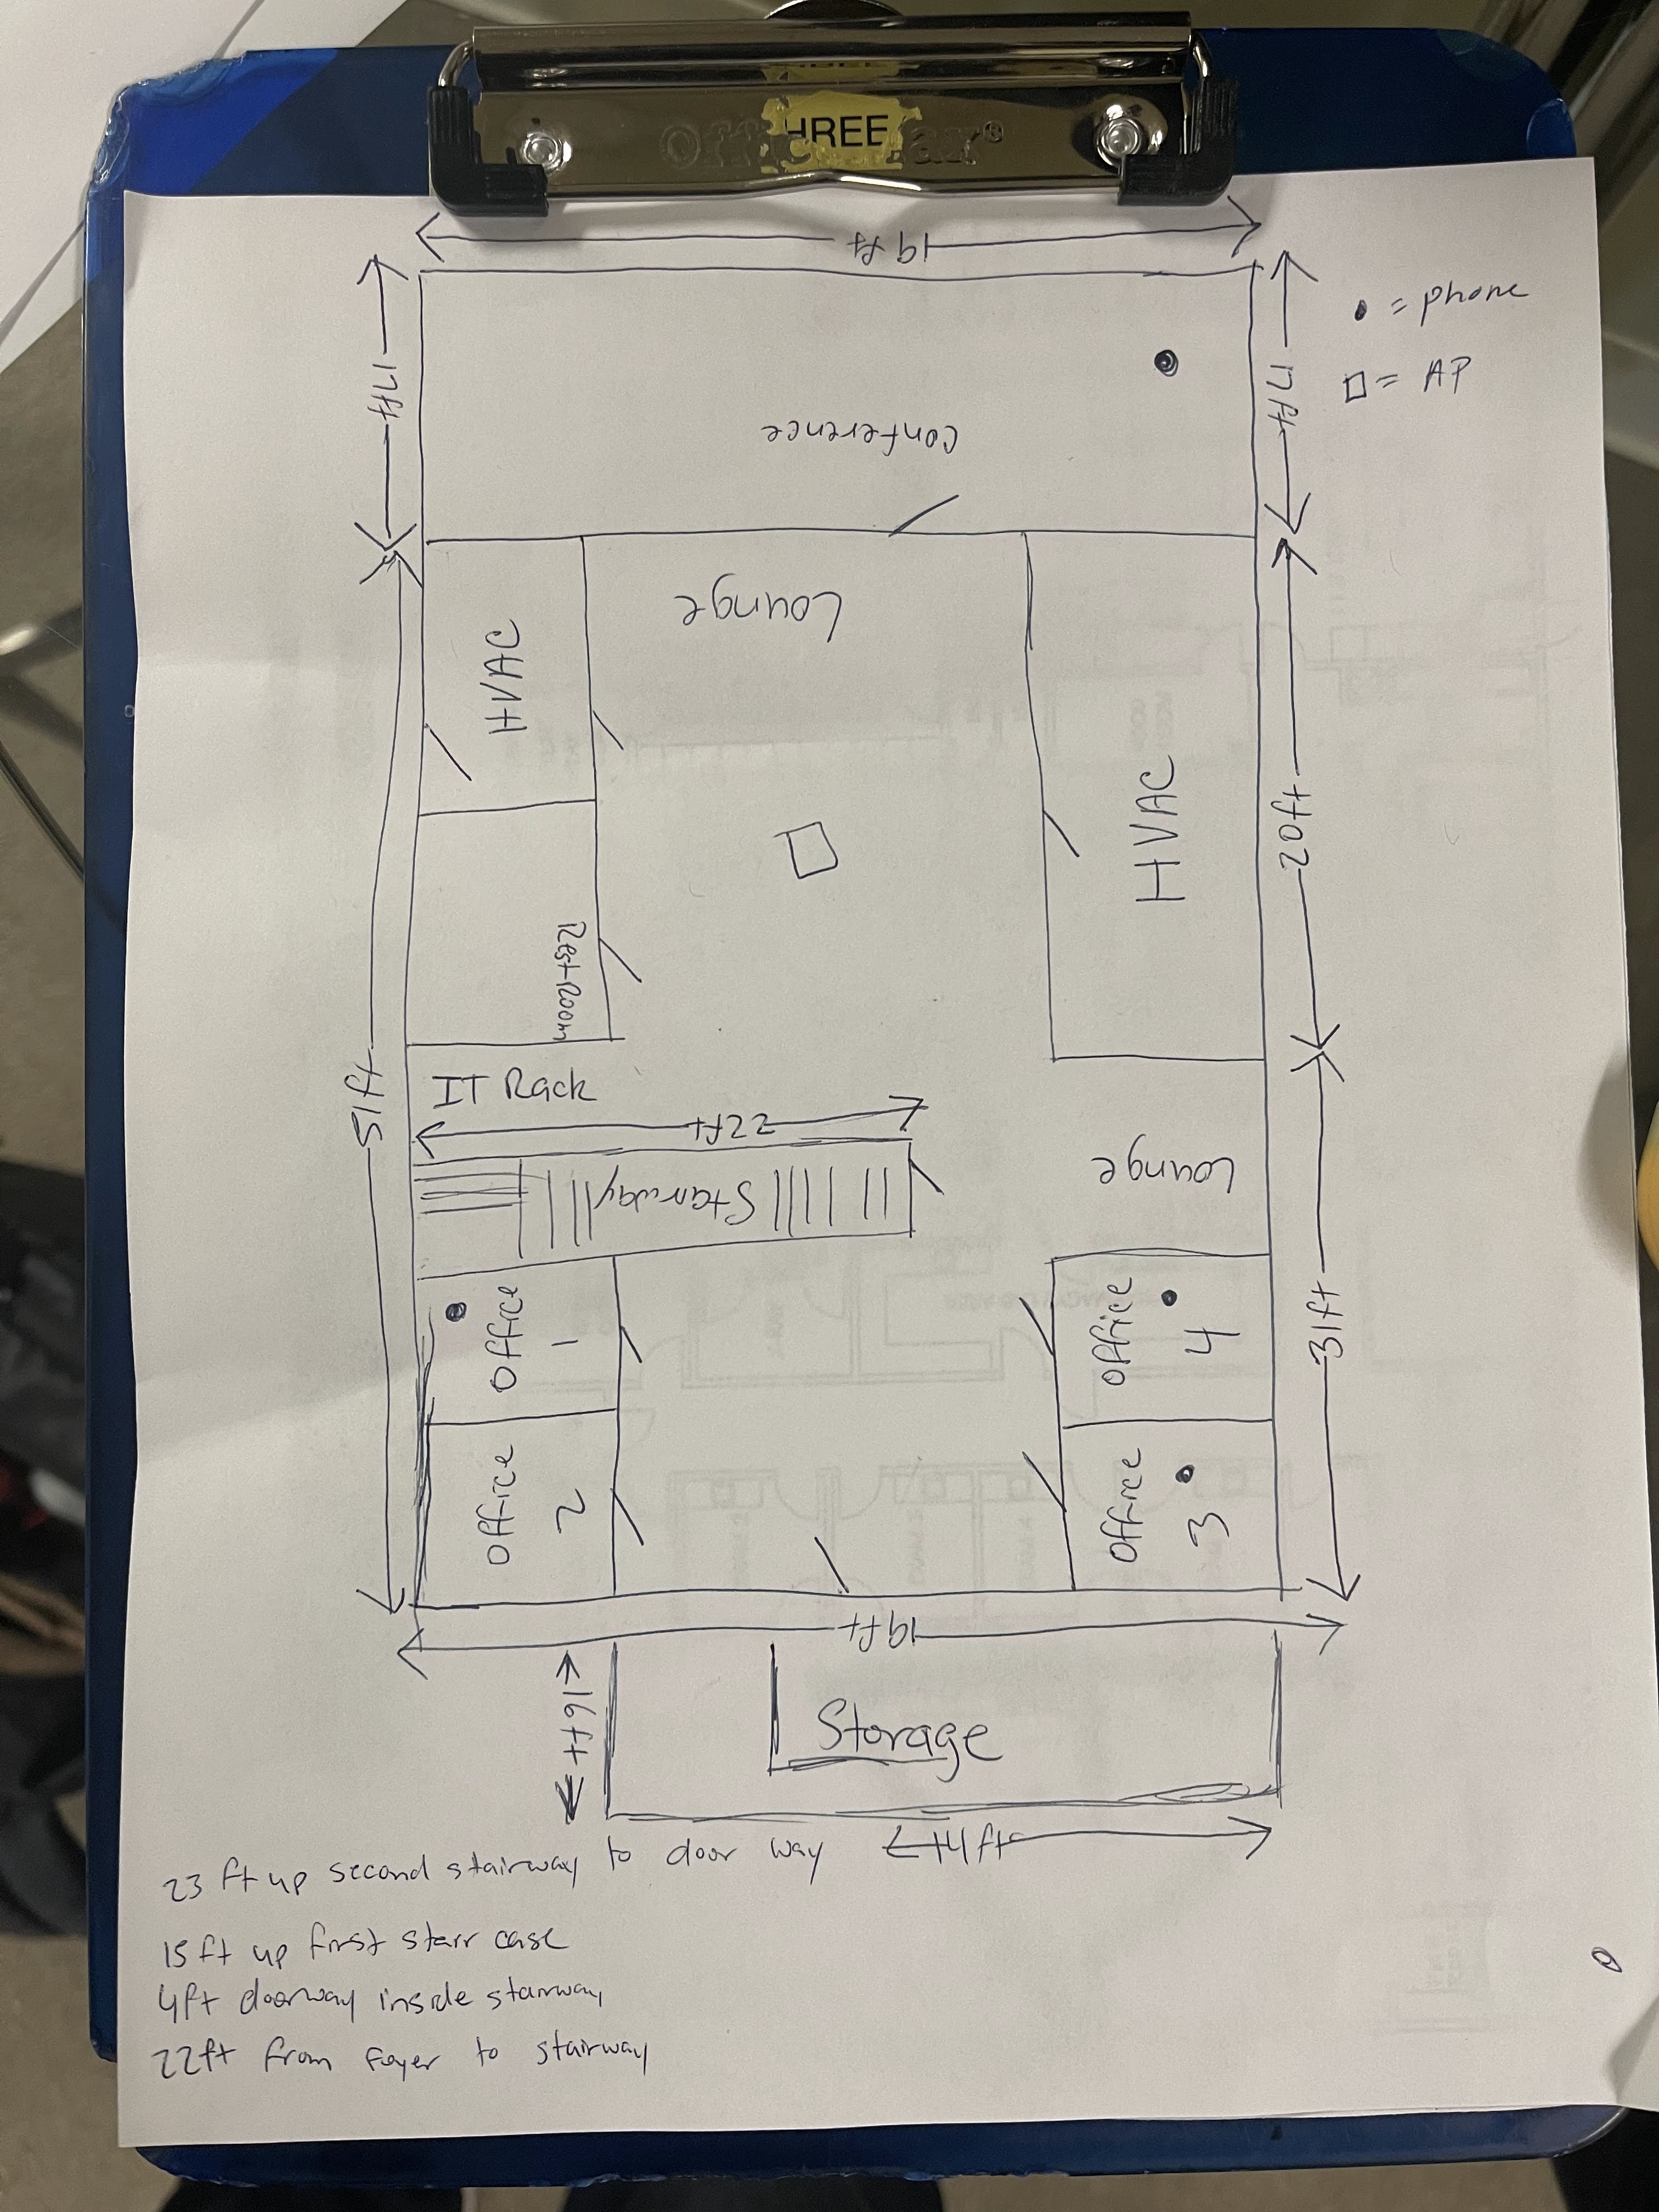 HREE
19 ft
17ft
17ft
• = phone
□ = AP
Conference
Lounge
HVAC
HVAC
20ft
Restroom
51ft
IT Rack
22ft
Stairway
Lounge
Office
1
Office
4
31ft
Office
2
Office
3
19ft
16ft
Storage
14ft
23 ft up second stairway to door way
15ft up first stair case
4ft doorway inside stairway
22ft from foyer to stairway